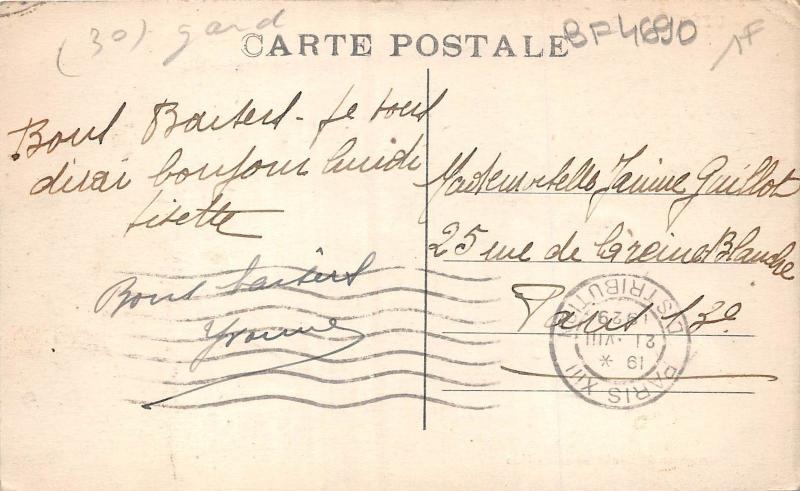 (30) gard
CARTE POSTALE
BF4690
1F
Bons Baisers - Je vous
dirai bonjour lundi
Lisette
Bons baisers
Yvonne
Mademoiselle Janine Guillot
25 rue de la reine Blanche
Paris 13e
PARIS XIII
DISTRIBUTION
19 *
21 - VIII
1929